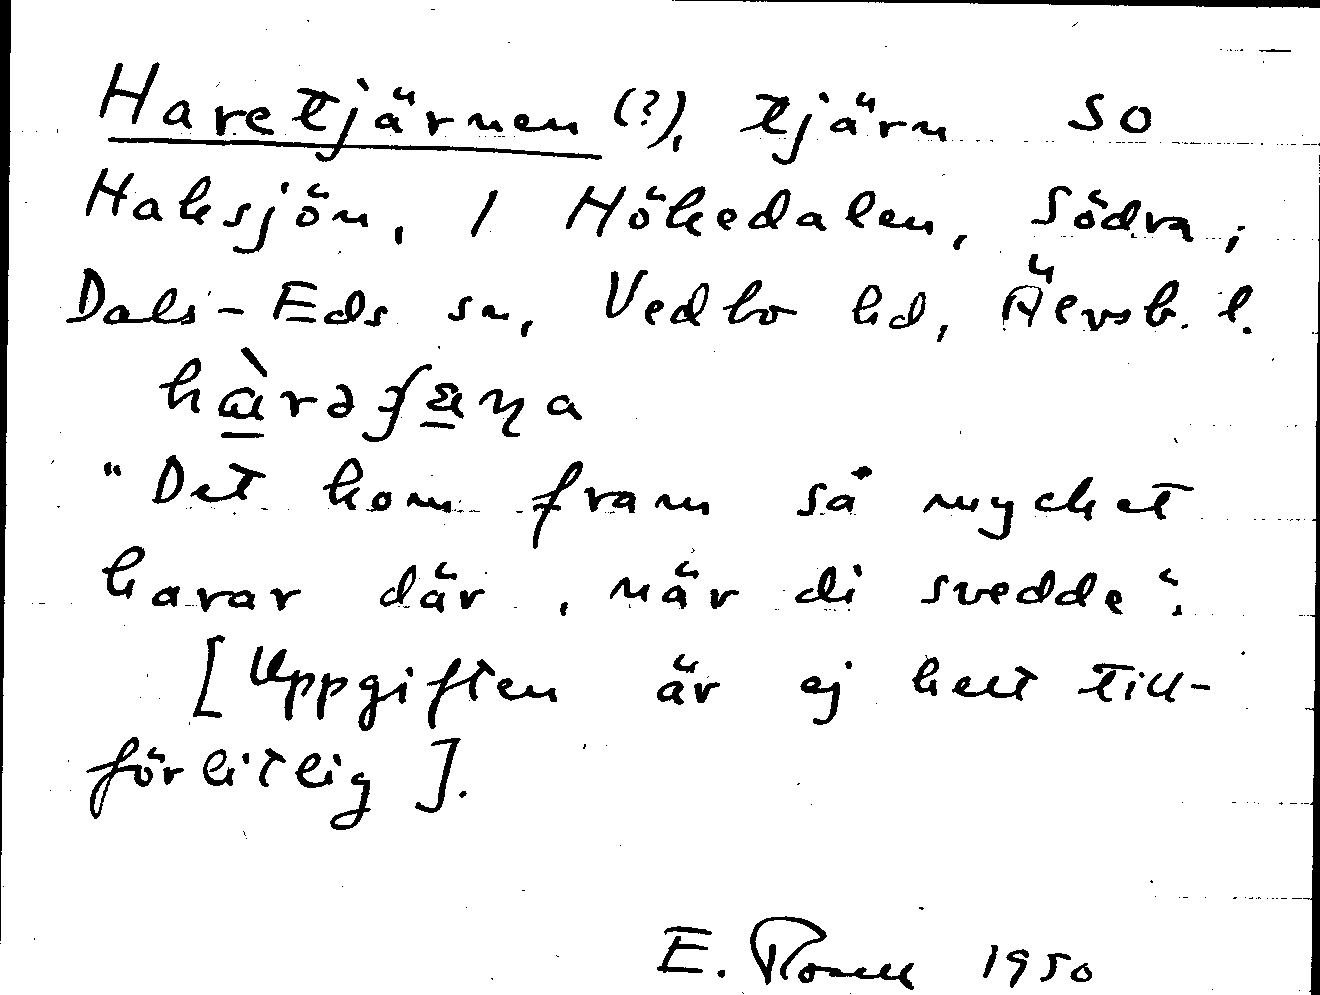 Haretjärnen (?), tjärn SO
Haksjön, 1 Hökedalen, Södra,
Dals-Eds sn, Vedbo hd, Älvsb. l.
"Det kom fram så mycket
harar där, när di svedde".
[Uppgiften är ej helt till-
förlitlig].
E. Rosell 1950